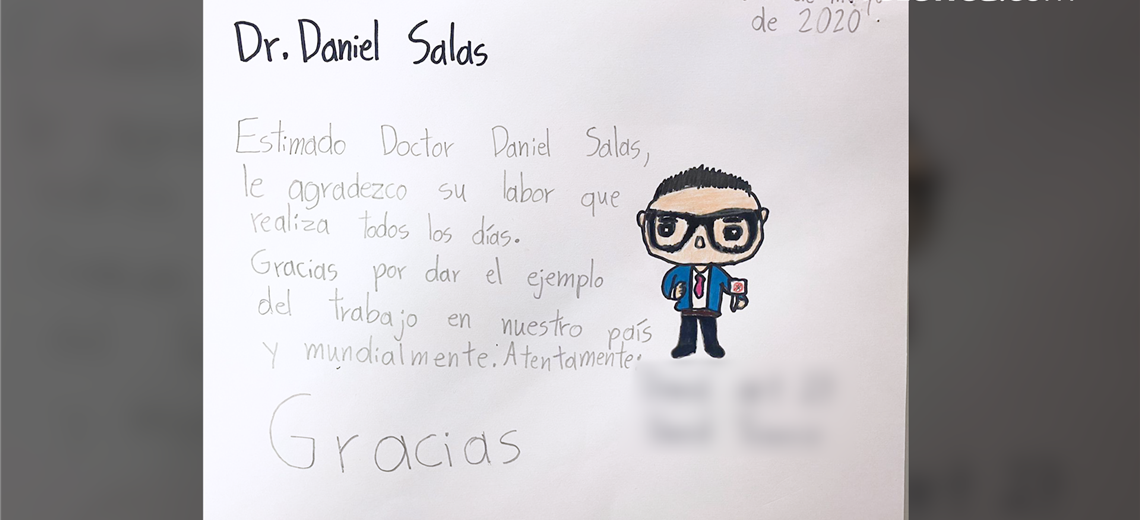 de 2020.
Dr. Daniel Salas
Estimado Doctor Daniel Salas,
le agradezco su labor que
realiza todos los días.
Gracias por dar el ejemplo
del trabajo en nuestro país
y mundialmente. Atentamente.
Gracias